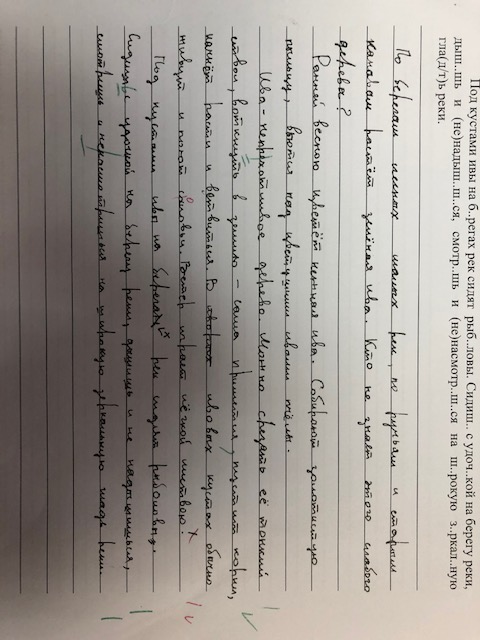 Под кустами ивы на б..регах рек сидят рыб..ловы. Сидиш.. с удоч..кой на берегу реки,
дыш..шь и (не)надыш..ш..ся, смотр..шь и (не)насмотр..ш..ся на ш..рокую з..ркал..ную
гла(д/т)ь реки.
По берегам многих малых рек, по ручьям и старым
канавам растёт зелёная ива. Кто не знает этого слабого
дерева?
Ранней весною цветёт нежная ива. Собирают золотистую
пыльцу, вьются над цветущими ивами пчёлы.
Ива - неприхотливое дерево. Можно срезать её тонкий
ствол, воткнуть в землю - сама примется, пустит корни,
начнёт расти и ветвиться. В ивовых кустах обычно
живут и поют соловьи. Ветер играет лёгкой листвою.
Под кустами ивы на берегах рек сидят рыболовы.
Сидишь с удочкой на берегу реки, дышишь и не надышишься,
смотришь и не насмотришься на широкую зеркальную гладь реки.